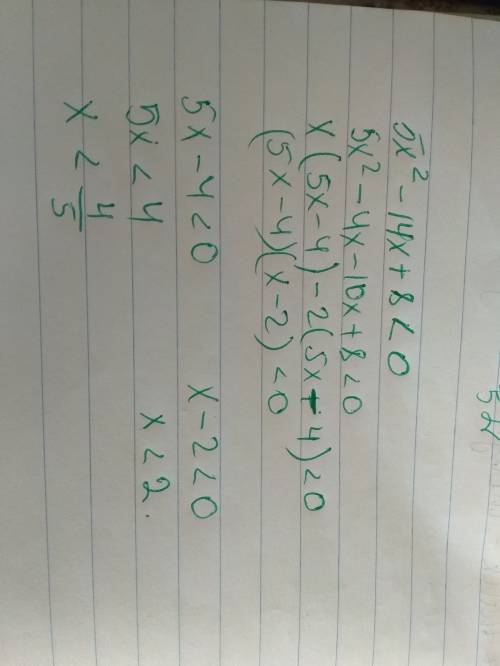 5x² - 14x + 8 < 0
5x² - 4x - 10x + 8 < 0
x(5x - 4) - 2(5x - 4) < 0
(5x - 4)(x - 2) < 0
5x - 4 < 0 x - 2 < 0
5x < 4 x < 2.
x < 4/5